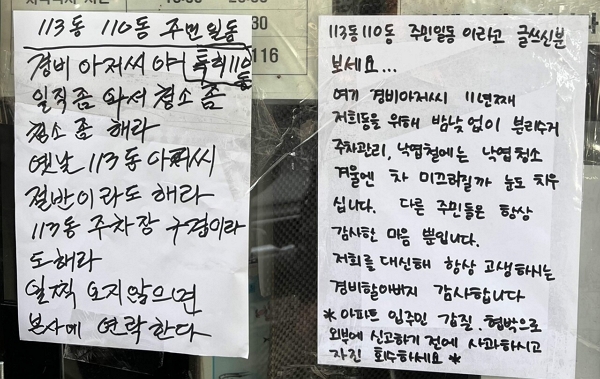 113동 110동 주민일동
경비 아저씨 야 특히 110동
일직좀 와서 청소 좀
청소 좀 해라
옛날 113동 아저씨
절반이라도 해라
113동 주차장 구경이라
도해라
일찍 오지않으면
본사에 연락한다
116
113동110동 주민일동 이라고 글쓰신분
보세요...
여기 경비아저씨 11년째
저희동을 위해 밤낮 없이 분리수거
주차관리, 낙엽철에는 낙엽청소
겨울엔 차 미끄러질까 눈도 치우
십니다. 다른 주민들은 항상
감사한 마음 뿐입니다.
저희를 대신해 항상 고생하시는
경비할아버지 감사합니다
* 아파트 입주민 갑질.협박으로
외부에 신고하기 전에 사과하시고
자진 회수하세요 *